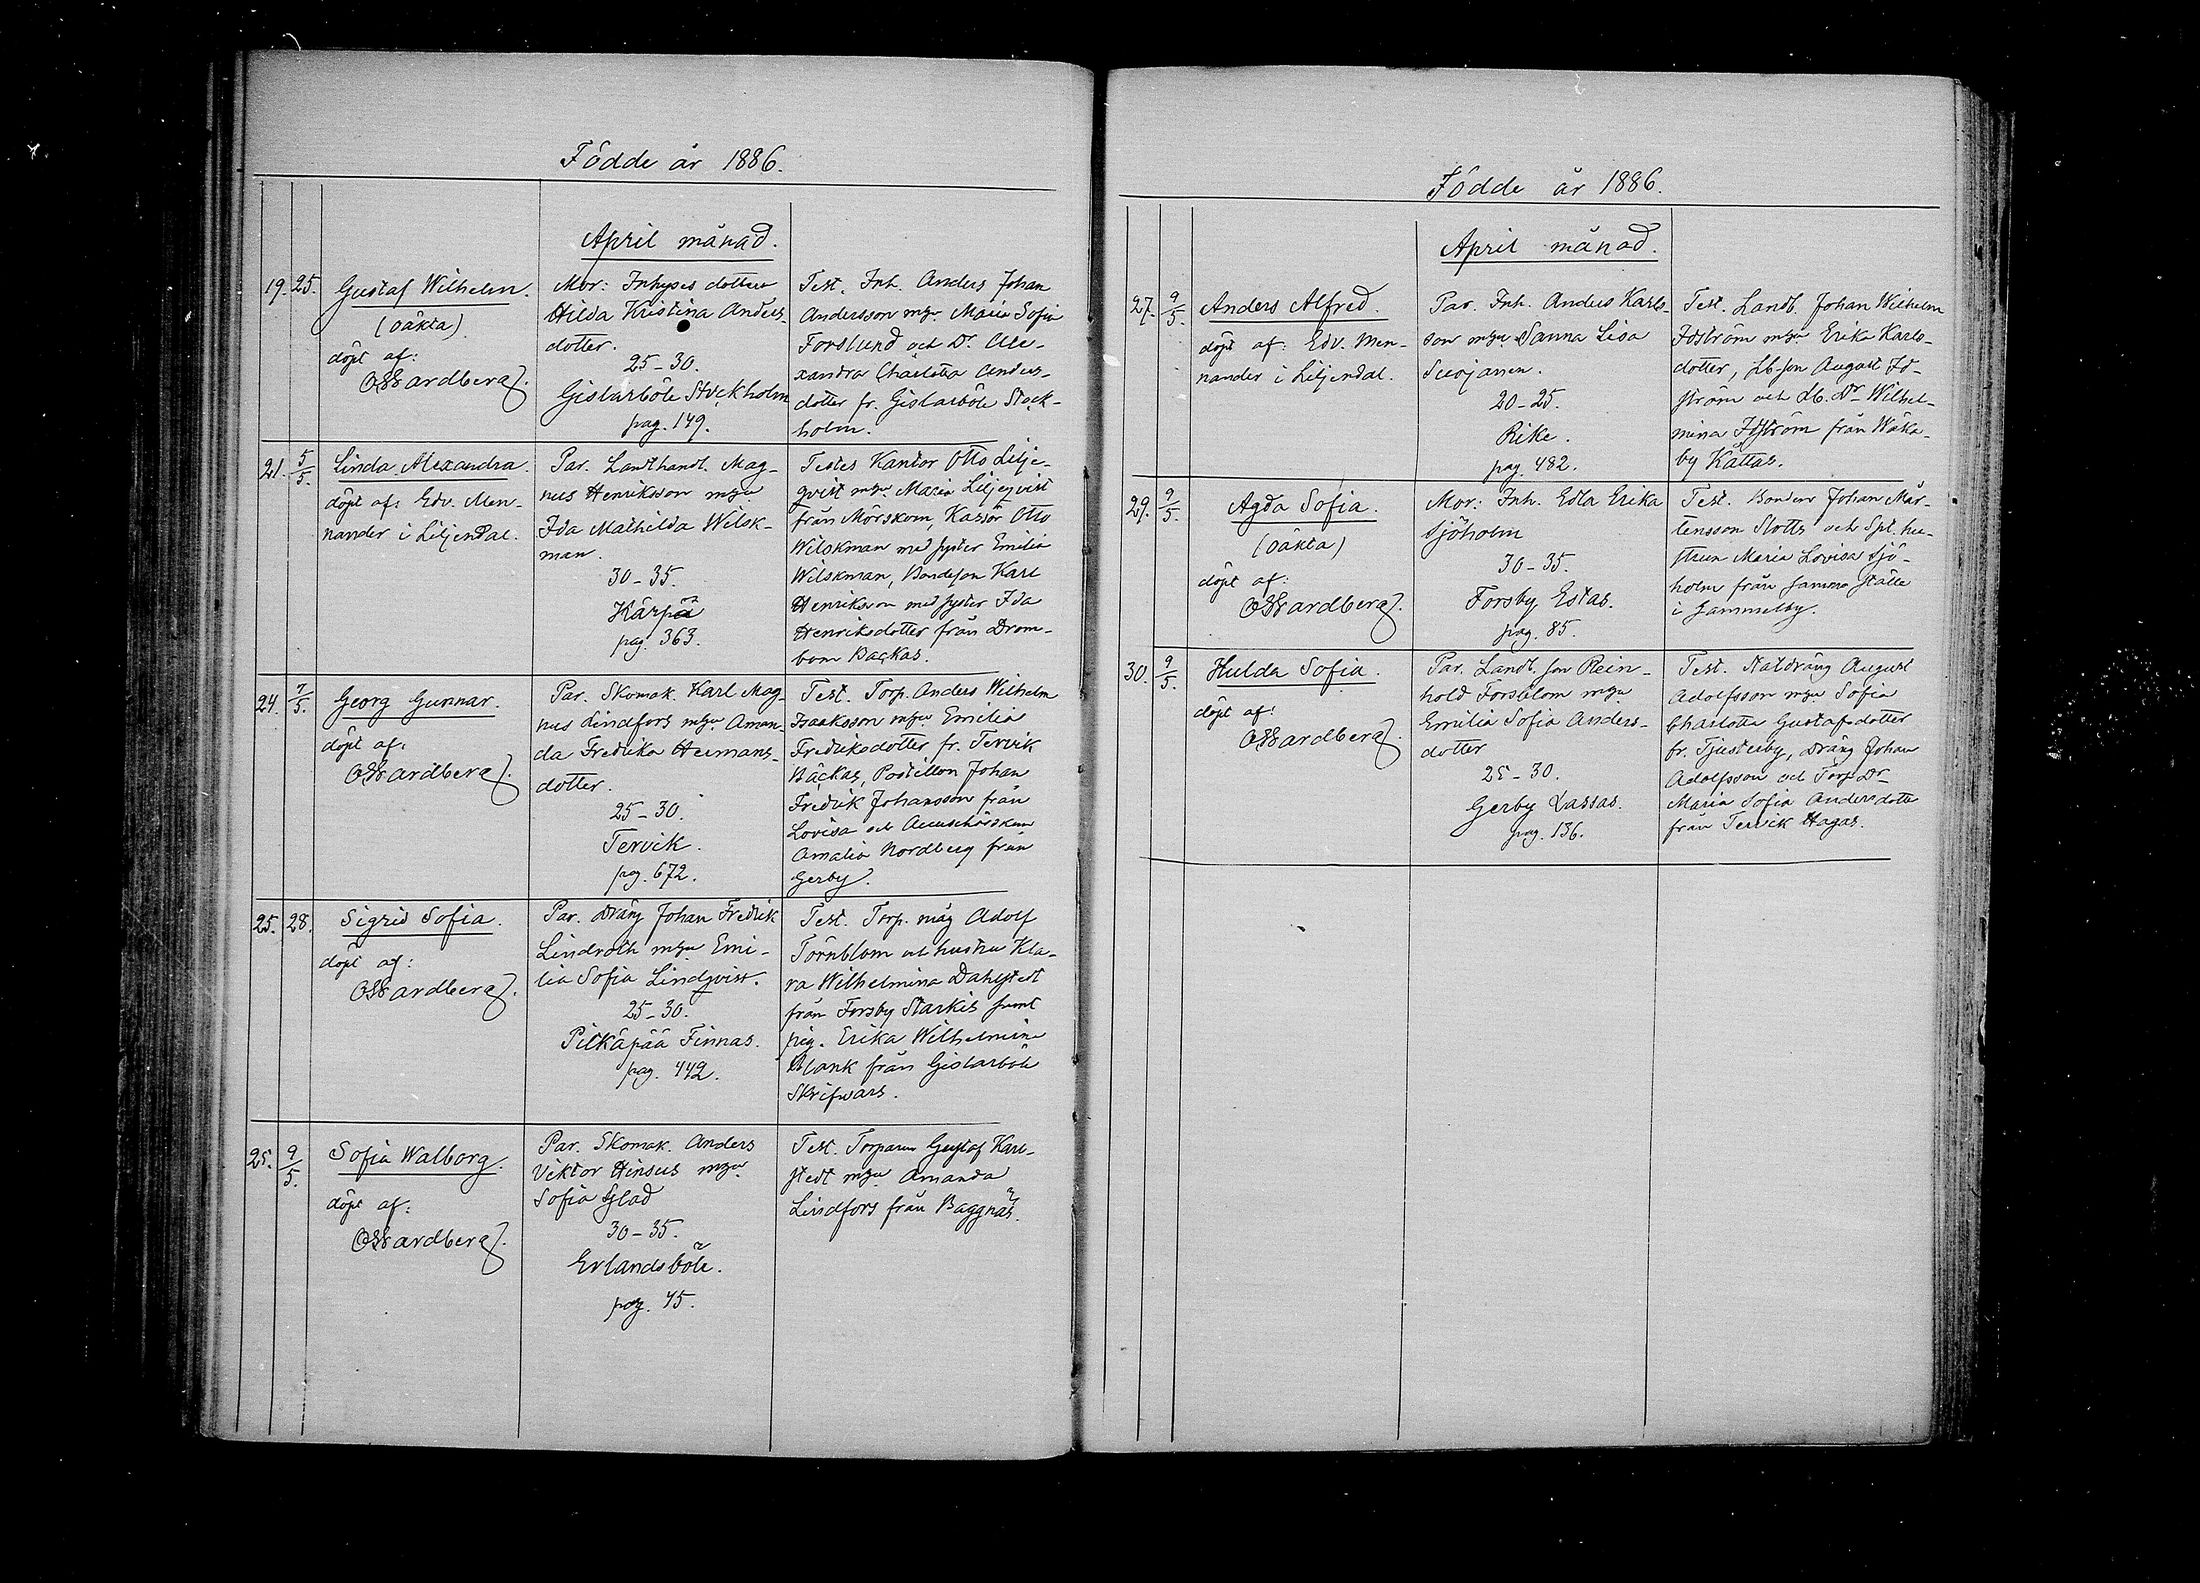 Födde år 1886.
April månad.
19. 25. Gustaf Wilhelm.
(oäkta)
döpt af:
OWardberg.
Mor: Inhyses dotter
Hilda Kristina Anders-
dotter.
25-30.
Gislarböle Stockholm
pag. 149.
Test. Inh. Anders Johan
Andersson mhu Maria Sofia
Forslund och Dr. Ale-
xandra Charlotta Anders-
dotter fr. Gislarböle Stock-
holm.
21. 5/5. Linda Alexandra.
döpt af: Edv. Men-
nander i Liljendal.
Par. Landthandl. Mag-
nus Henriksson mhu
Ida Mathilda Wilsk-
man.
30-35.
Kärpä
pag. 363.
Testes Kantor Otto Lilje-
qvist mhu Maria Liljeqvist
från Mörskom, Kassör Otto
Wilskman med syster Emilia
Wilskman, Bondeson Karl
Henriksson med syster Ida
Henriksdotter från Drom-
bom Backas.
24. 7/5. Georg Gunnar.
döpt af:
OWardberg.
Par. Skomak. Karl Mag-
nus Lindfors mhu Aman-
da Fredrika Hermans-
dotter.
25-30.
Tervik.
pag. 672.
Test. Torp. Anders Wilhelm
Isaaksson mhu Emilia
Fredriksdotter fr. Tervik
Bäckas, Postillon Johan
Fredrik Johansson från
Lovisa och
Amalia Nordberg från
Gerby.
25. 28. Sigrid Sofia.
döpt af:
OWardberg.
Par. Dräng Johan Fredrik
Lindroth mhu Emi-
lia Sofia Lindqvist.
25-30.
Pitkäpää Finnas.
pag. 442.
Test. Torp. måg Adolf
Törnblom och hustru Kla-
ra Wilhelmina Dahlstedt
från Forsby Starkis samt
pig. Erika Wilhelmina
Blank från Gislarböle
Skrifwars.
25. 9/5. Sofia Walborg.
döpt af:
OWardberg.
Par. Skomak. Anders
Viktor Hinsus mhu
Sofia Glad
30-35.
Erlandsböle.
pag. 45.
Test. Torparen Gustaf Karl-
stedt mhu Amanda
Lindfors från Baggnäs.
Födde år 1886.
April månad.
27. 9/5. Anders Alfred.
döpt af: Edv. Men-
nander i Liljendal.
Par. Inh. Anders Karls-
son mhu Sanna Lisa
Suojanen.
20-25.
Rike.
pag. 482.
Test. Landb. Johan Wilhelm
Idström mhu Erika Karls-
dotter, Lb. son August Id-
ström och Lb. Dr Wilhel-
mina Idström från Wåka-
by Kattas.
29. 9/5. Agda Sofia.
(oäkta)
döpt af:
OWardberg.
Mor: Inh. Edla Erika
Sjöholm
30-35.
Forsby Estas.
pag. 85.
Test. Bonden Johan Mår-
tensson Slotts och Spt. hu-
strun Maria Lovisa Sjö-
holm från samma ställe
i Gammelby.
30. 9/5. Hulda Sofia.
döpt af:
OWardberg.
Par. Landb. son Rein-
hold Forsblom mhu
Emilia Sofia Anders-
dotter
25-30.
Gerby Lassas.
pag. 136.
Test. Statdräng August
Adolfsson mhu Sofia
Charlotta Gustafsdotter
fr. Tjusterby, Dräng Johan
Adolfsson och Torp. Dr
Maria Sofia Andersdotter
från Tervik Hagas.